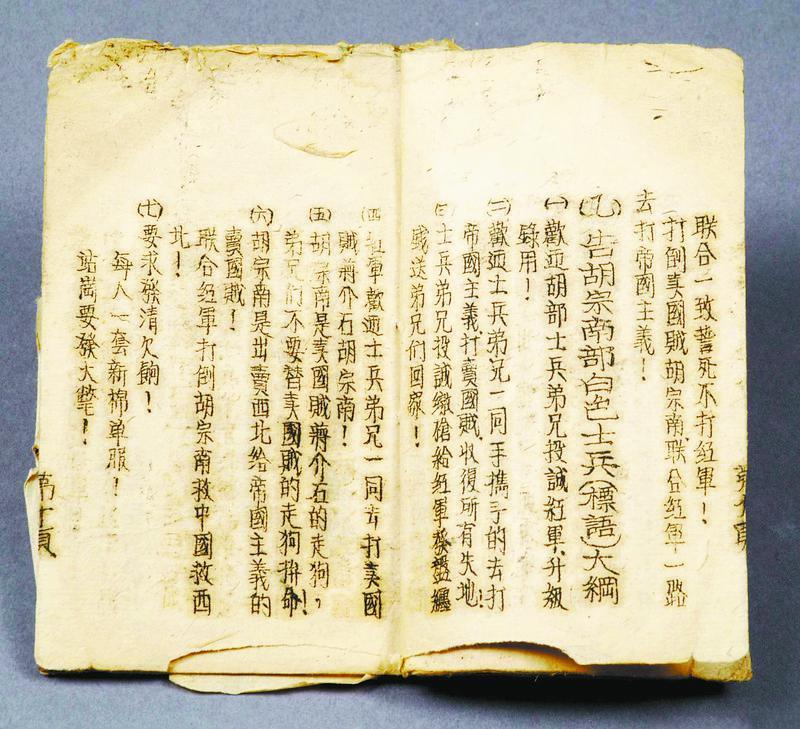 聯合一致誓死不打红軍！
打倒賣國賊胡宗南,联合红軍一路
去打帝國主義！
(九)告胡宗南部白色士兵(標語)大綱
(一)歡迎胡部士兵弟兄投誠紅軍、升級
錄用！
(二)歡迎士兵弟兄一同手攜手的去打
帝國主義,打賣國賊,收復所有失地！
(三)士兵弟兄投誠繳槍給红軍發盤纏
歡送弟兄們回家！
(四)红軍歡迎士兵弟兄一同去打賣國
賊蔣介石胡宗南！
(五)胡宗南是賣國賊蔣介石的走狗，
弟兄們不要替賣國賊的走狗拚命！
(六)胡宗南是出賣西北给帝國主義的
賣國賊！
联合红軍打倒胡宗南救中國救西
北！
(七)要求發清欠餉！
每人一套新棉单服！
站崗要發大氅！
第十頁